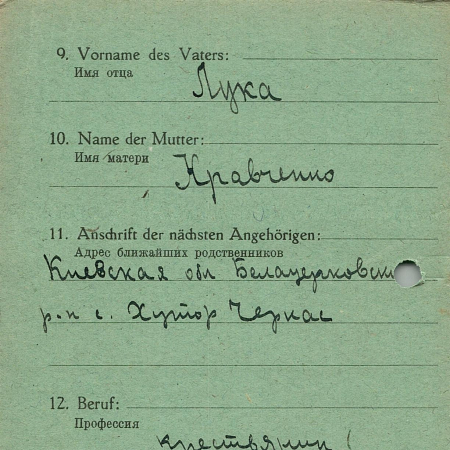 9. Vorname des Vaters:
Имя отца
Лука
10. Name der Mutter:
Имя матери
Кравченко
11. Anschrift der nächsten Angehörigen:
Адрес ближайших родственников
Киевская обл Белацерковски
р-н с. Хутор Черкас
12. Beruf:
Профессия
крестьянин (